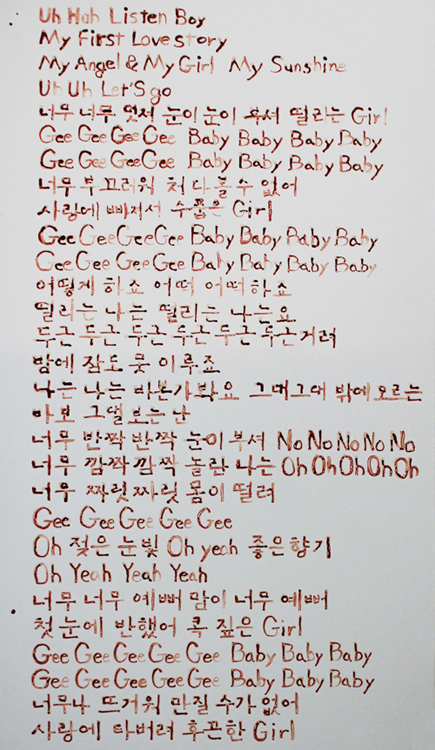 Uh Huh Listen Boy
My First Love story
My Angel & My Girl My Sunshine
Uh Uh Let'S go
너무 너무 멋져 눈이 눈이 부셔 떨리는 Girl
Gee Gee Gee Gee Baby Baby Baby Baby
Gee Gee Gee Gee Baby Baby Baby Baby
너무 부끄러워 쳐다볼 수 없어
사랑에 빠져서 수줍은 Girl
Gee Gee Gee Gee Baby Baby Baby Baby
Gee Gee Gee Gee Baby Baby Baby Baby
어떻게 하죠 어떡 어떡하죠
떨리는 나는 떨리는 나는요
두근 두근 두근 두근 두근 두근거려
밤에 잠도 못 이루죠
나는 나는 바본가봐요 그대 그대 밖에 모르는
바보 그댈 보는 난
너무 반짝 반짝 눈이 부셔 No No No No No
너무 깜짝 깜짝 놀란 나는 Oh Oh Oh Oh Oh
너무 짜릿 짜릿 몸이 떨려
Gee Gee Gee Gee Gee
Oh 젖은 눈빛 Oh yeah 좋은향기
Oh Yeah Yeah Yeah
너무 너무 예뻐 맘이 너무 예뻐
첫눈에 반했어 콕 짚은 Girl
Gee Gee Gee Gee Gee Baby Baby Baby
Gee Gee Gee Gee Gee Baby Baby Baby
너무나 뜨거워 만질 수가 없어
사랑에 타버려 후끈한 Girl